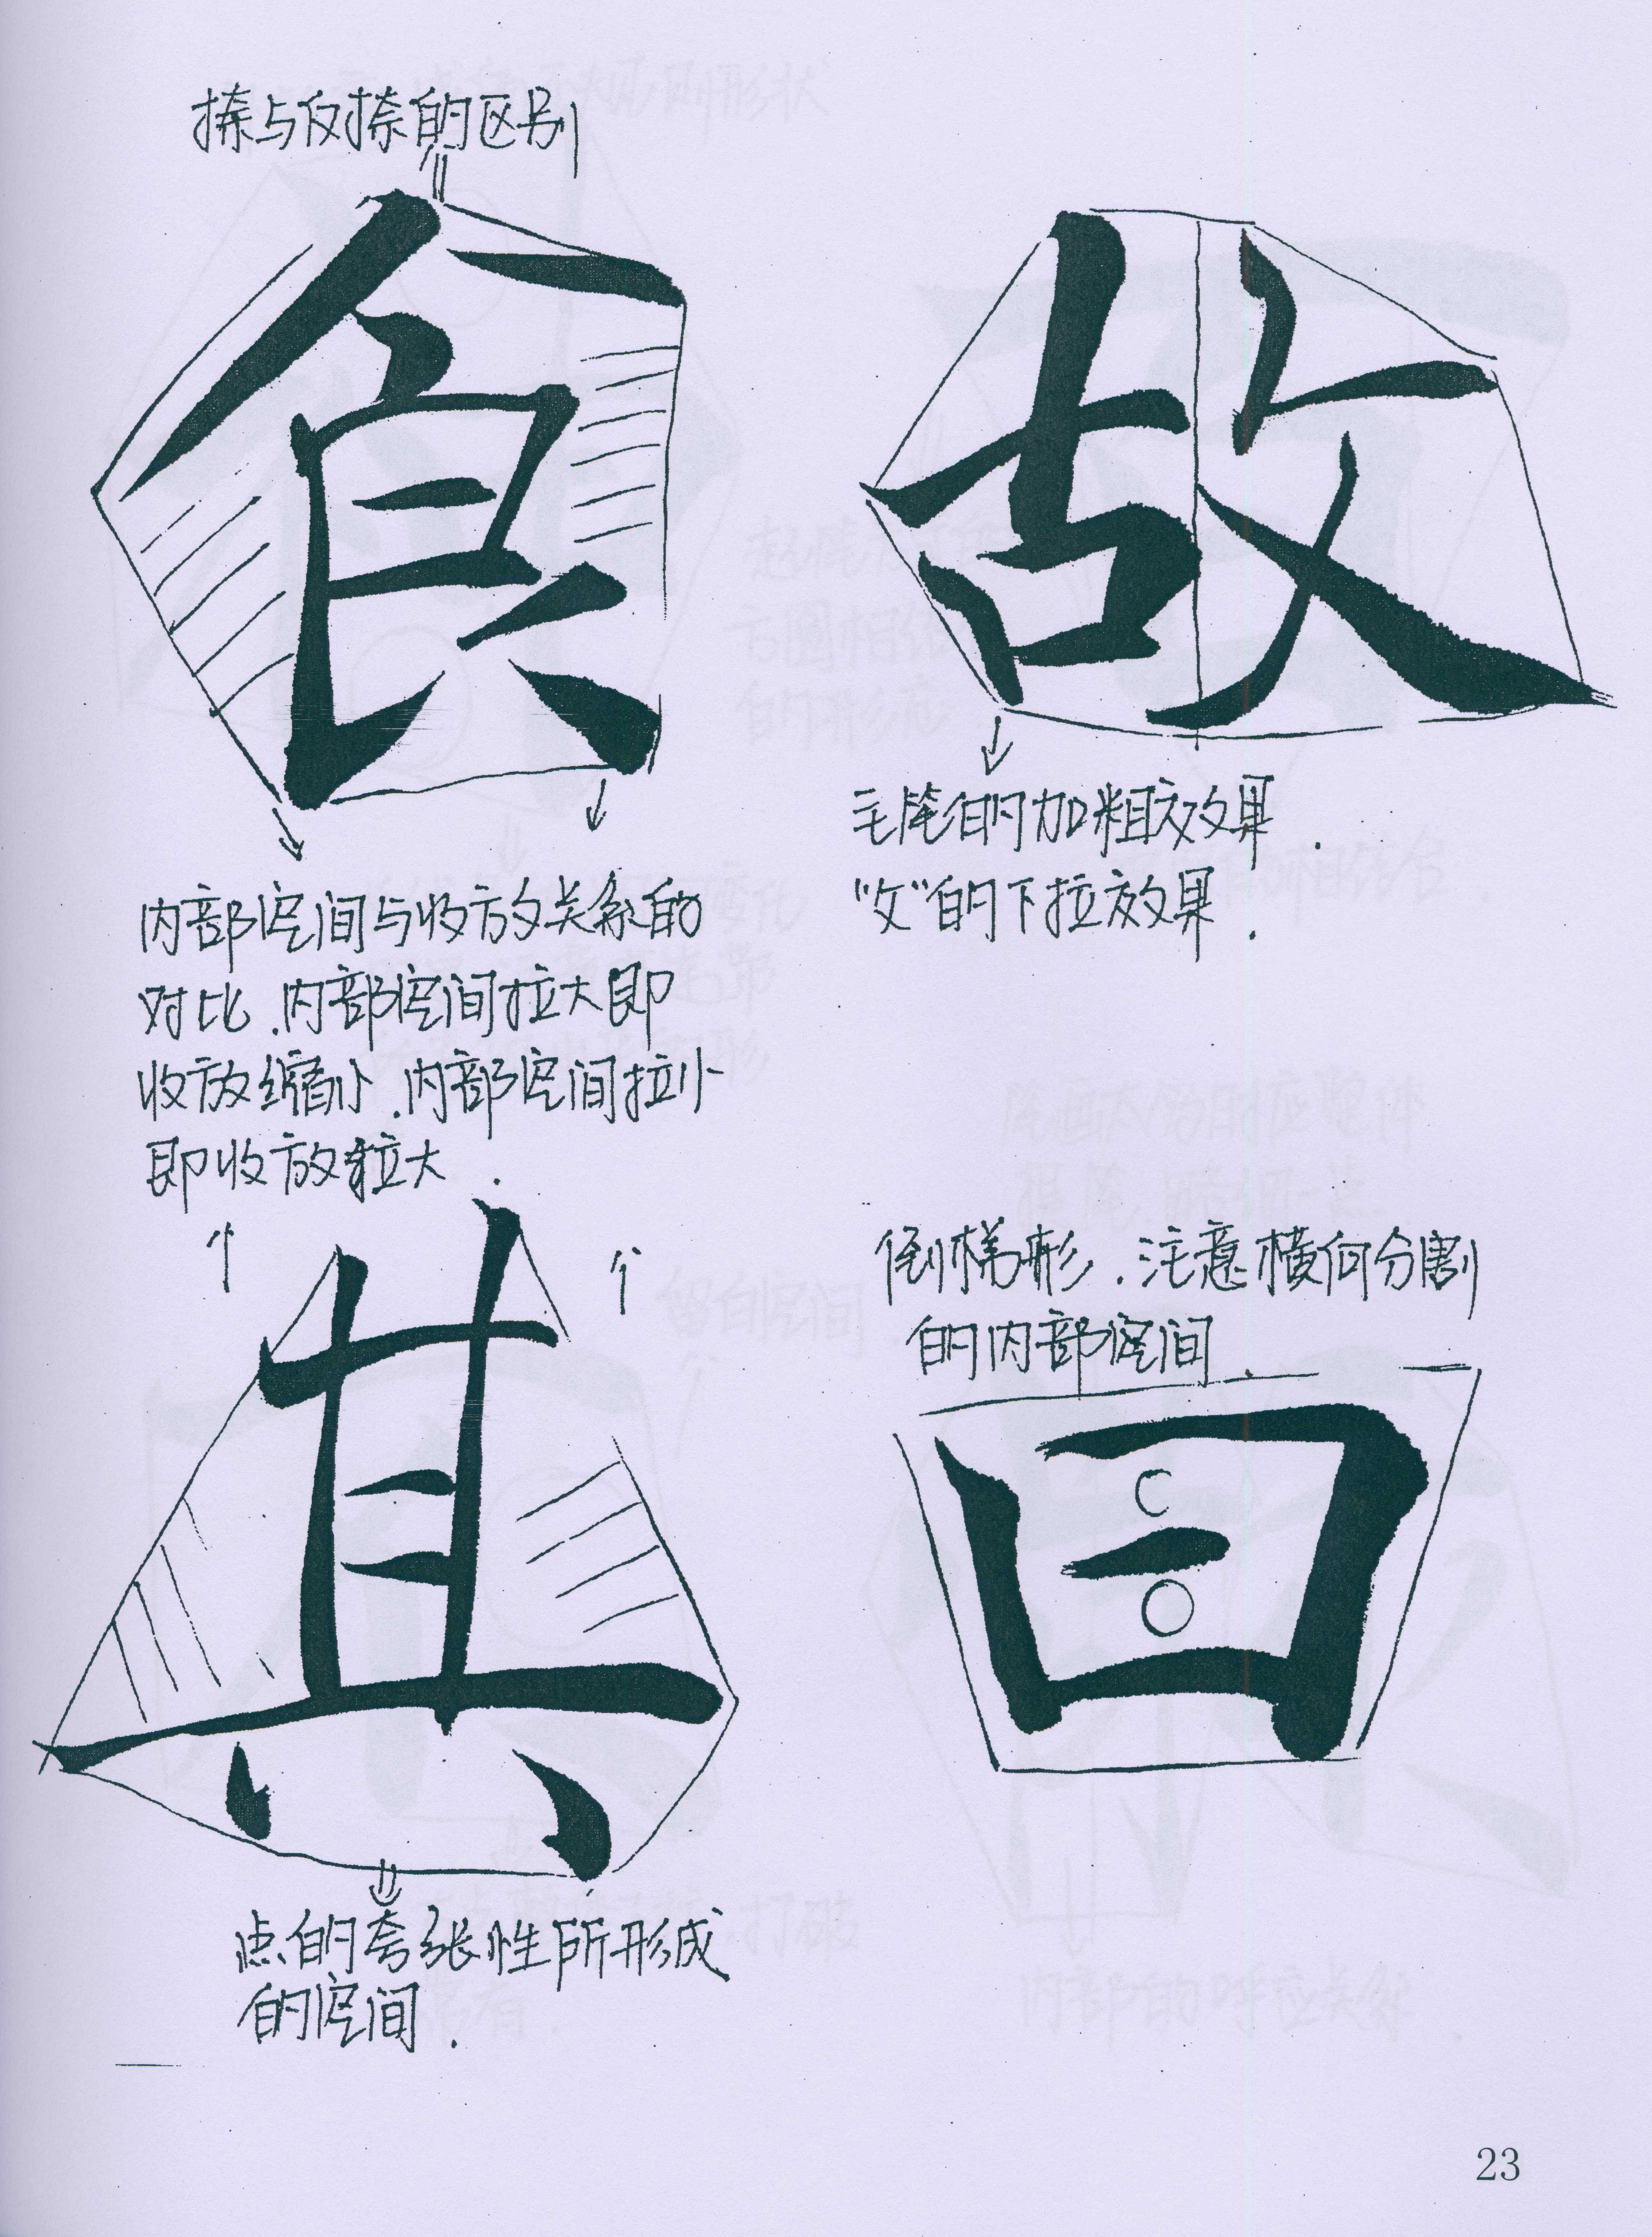 捺与反捺的区别
食
故
内部空间与收放关系的
对比.内部空间拉大即
收放缩小.内部空间拉小
即收放拉大.
毛笔的加粗效果.
“攵”的下拉效果.
其
倒梯形.注意横向分割
的内部空间.
曰
点的夸张性所形成
的空间.
23